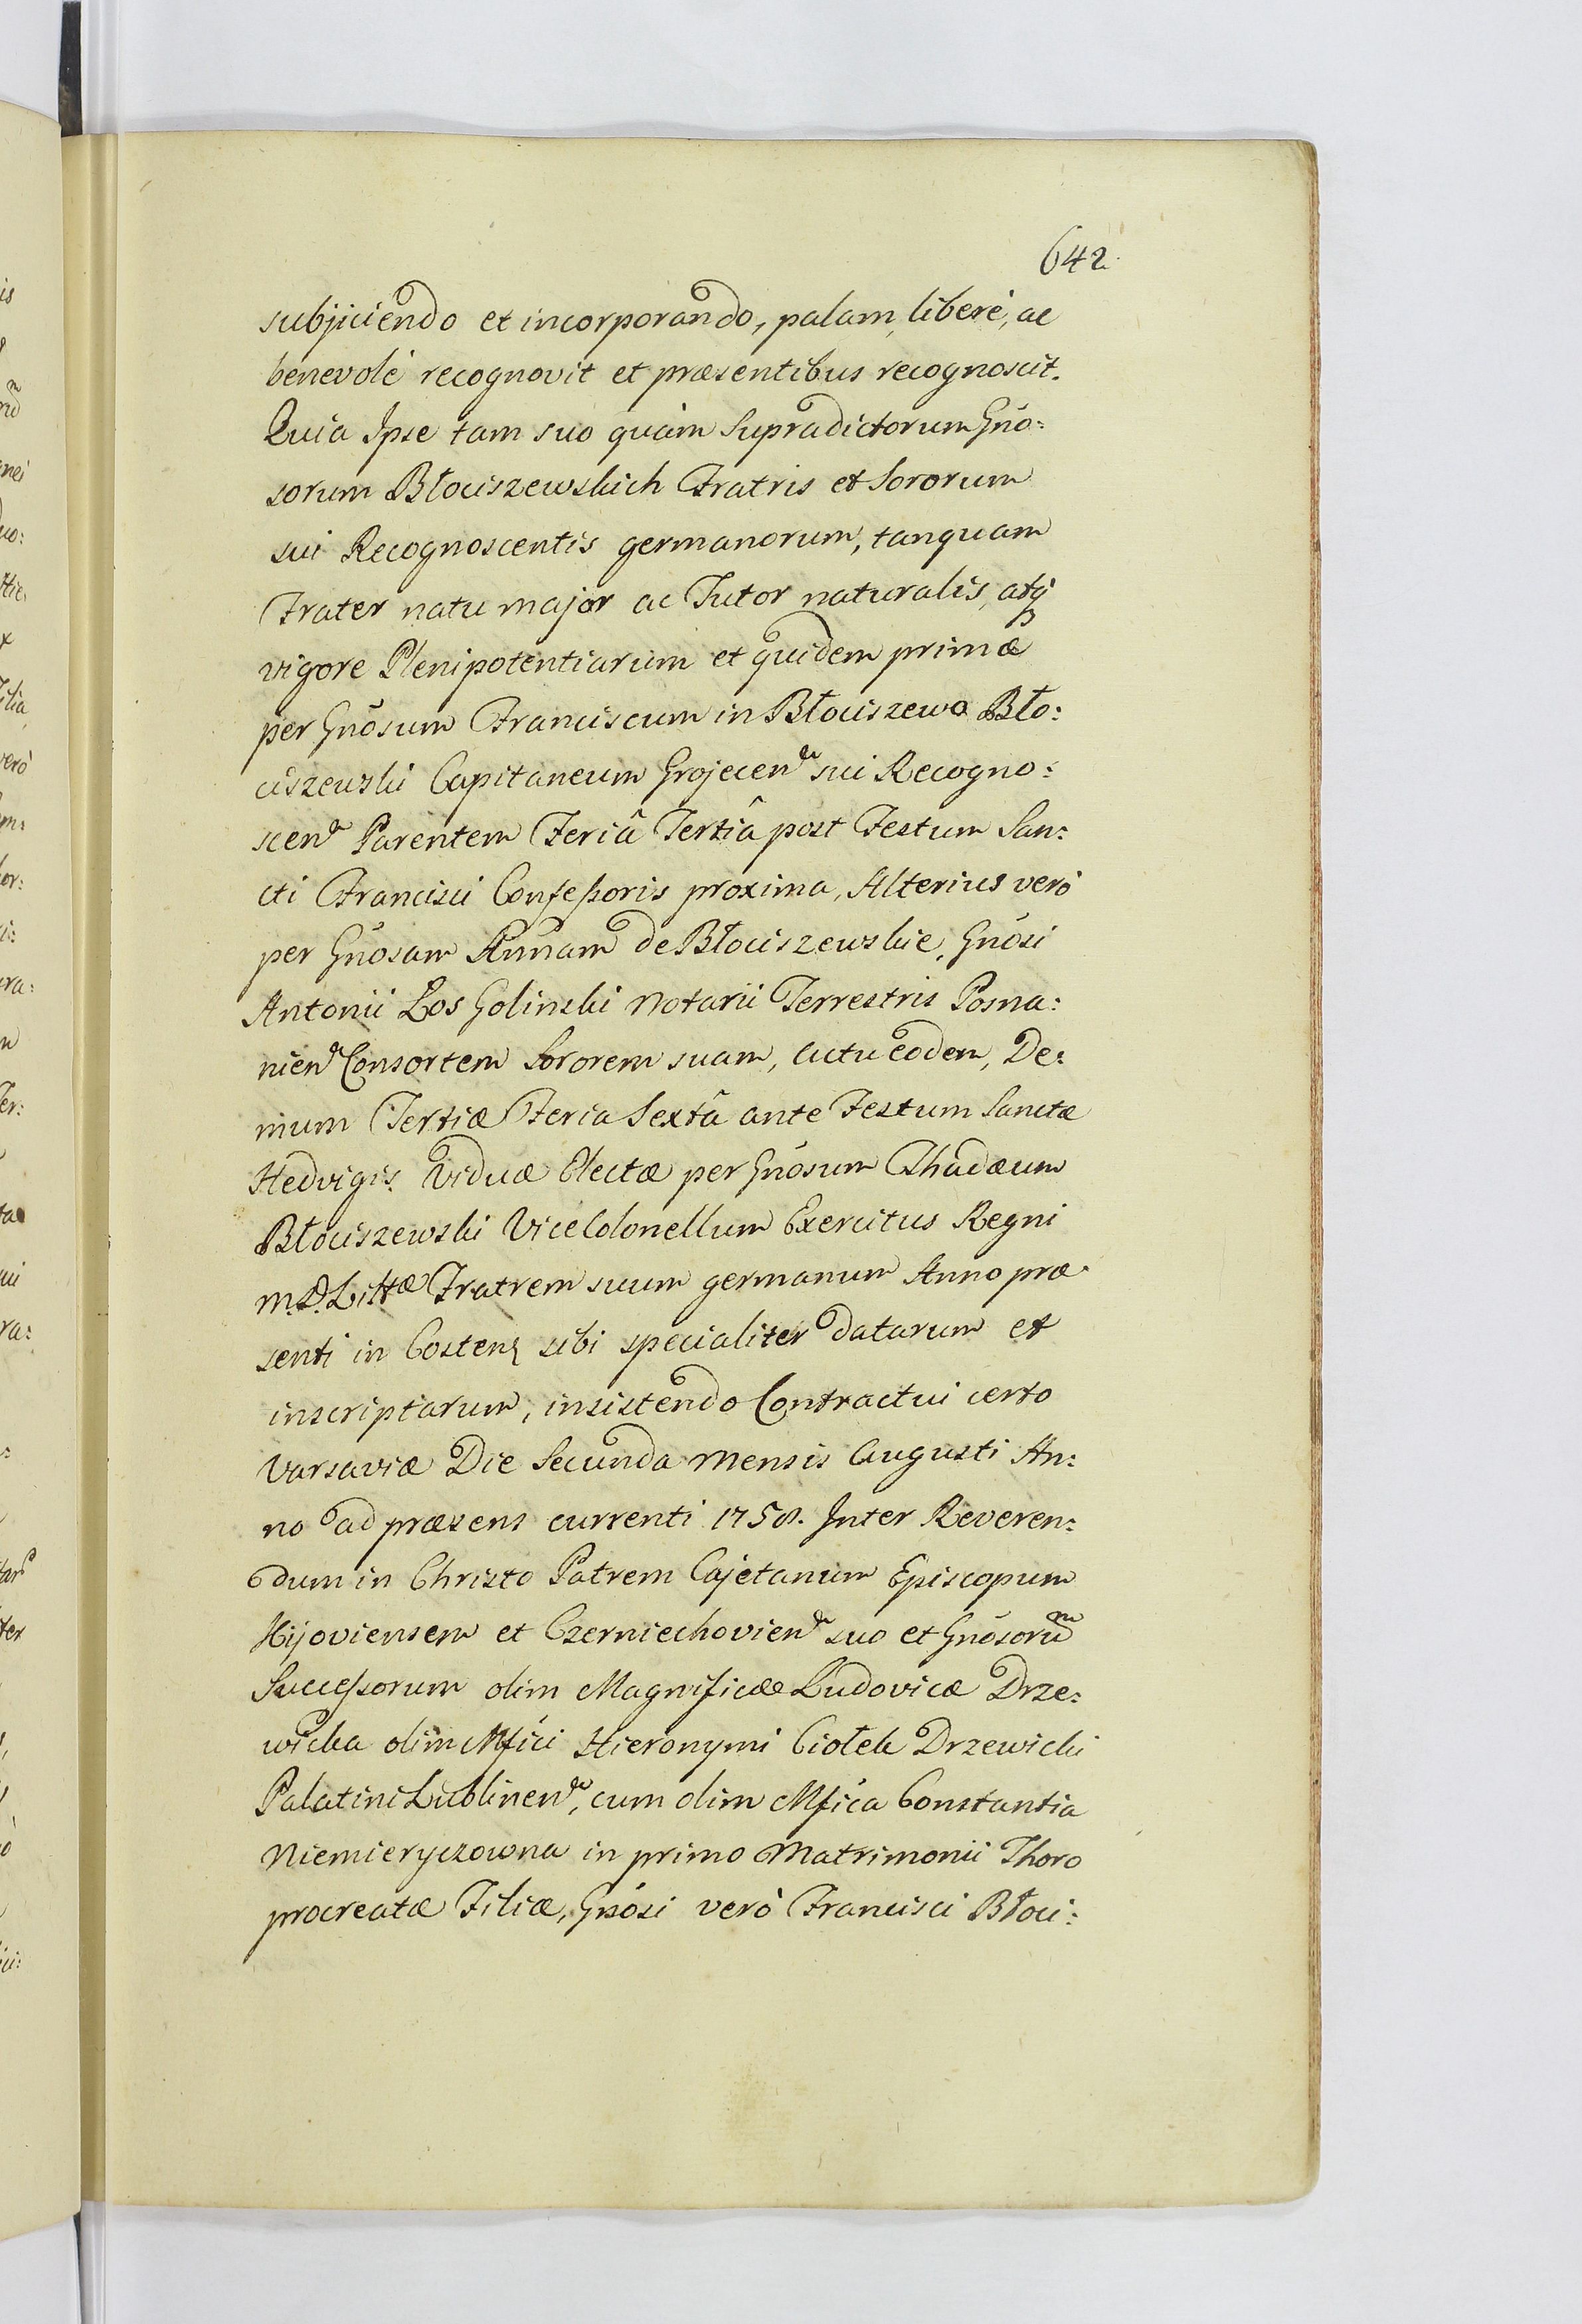 642.
subjiciendo et incorporando, palam, liberè, ac
benevolè recognovit et præsentibus recognoscit.
Quia Ipse tam suo quàm Supradictorum Gño:
sorum Błociszewskich Fratris et Sororum
sui Recognoscentis germanorum, tanquam
Frater natu major ac Tutor naturalis, atq́
vigore Plenipotentiarum et quidem primæ
per Gñosum Franciscum in Błociszewo Bło:
ciszewski Capitaneum Grojecen sui Recogno:
scen Parentem Feriâ Tertiâ post Festum San:
cti Francisci Confeßoris proxima, Alterius verò
per Gñosam Annam de Błociszewskie, Gñosi
Antonii Łos Golinski Notarii Terrestris Posna:
nien Consortem Sororem suam, Actu eodem, De:
mum Tertiæ Feria Sextâ ante Festum Sanctæ
Hedvigis Viduæ Electæ per Gñosum Thadæum
Błociszewski ViceColonellum Exercitus Regni
M.D. Littæ Fratrem suum germanum Anno præ
senti in Costen sibi specialiter datarum et
inscriptarum, insistendo Contractui certo
Varsaviæ Die Secunda Mensis Augusti An:
no ad præsens currenti 1758. Inter Reveren:
dum in Christo Patrem Cajetanum Episcopum
Kijoviensem et Czerniechovien suo et Gñosorum
Succeßorum olim Magnificæ Ludovicæ Drze:
wicka olim Mfici Hieronymi Ciołek Drzewicki
Palatini Lublinen, cum olim Mfica Constantia
Niemieryczowna in primo Matrimonii Thoro
procreatæ Filiæ, Gñosi verò Francisci Błoci: